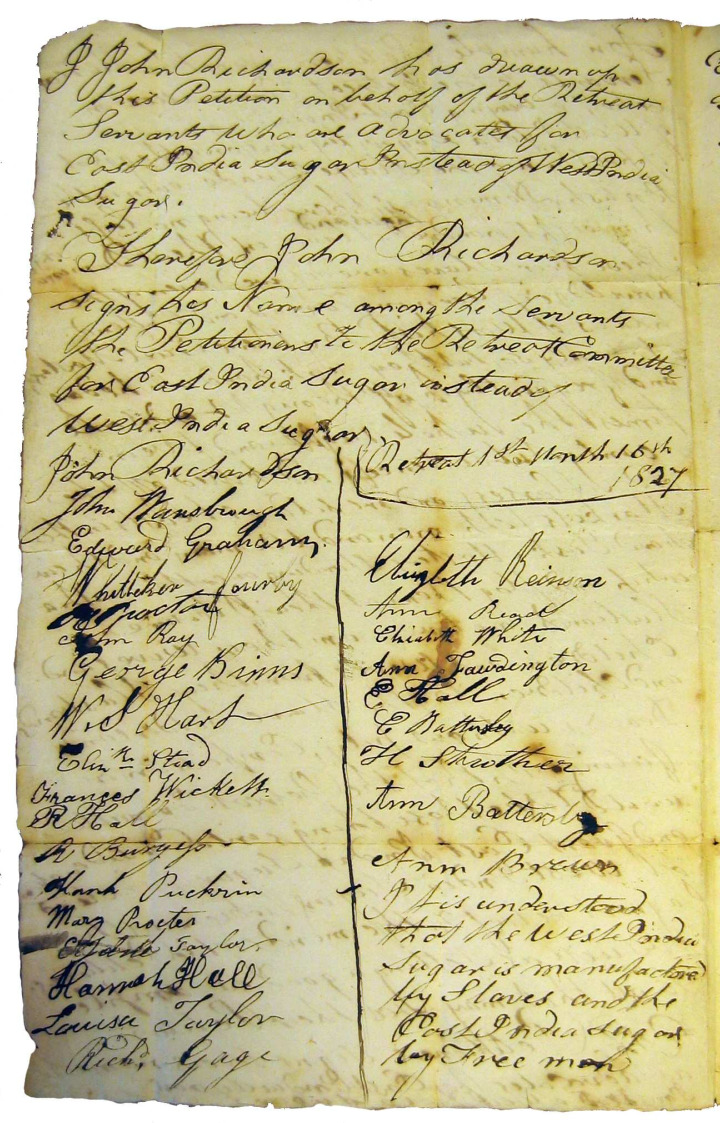 I John Richardson has drawn up
this Petition on behalf of the Retreat
Servants who are advocates for
East India Sugar Instead of West India
Sugar.
Therefore John Richardson
signs his Name among the Servants
the Petitioners to the Retreat Committee
for East India Sugar instead of
West India Sugar
Retreat 1st Month 16th
1827
John Richardson
John Wansbrough
Edward Graham
Whitteker
Procter
Ray
George Binns
W S Hart
Elizth Stead
Frances Wickett
R Hall
R Burgess
Hanh Puckrin
Mary Procter
Taylor
Hannah Hall
Louisa Taylor
Richd Gage
Elizabeth Reinson
Ann Read
Elizabeth White
Ann Fawdington
E Hall
E Battersby
H Strother
Ann Battersby
Ann Brown
It is understood
that the West India
Sugar is manufactored
by Slaves and the
East India Sugar
by Free men